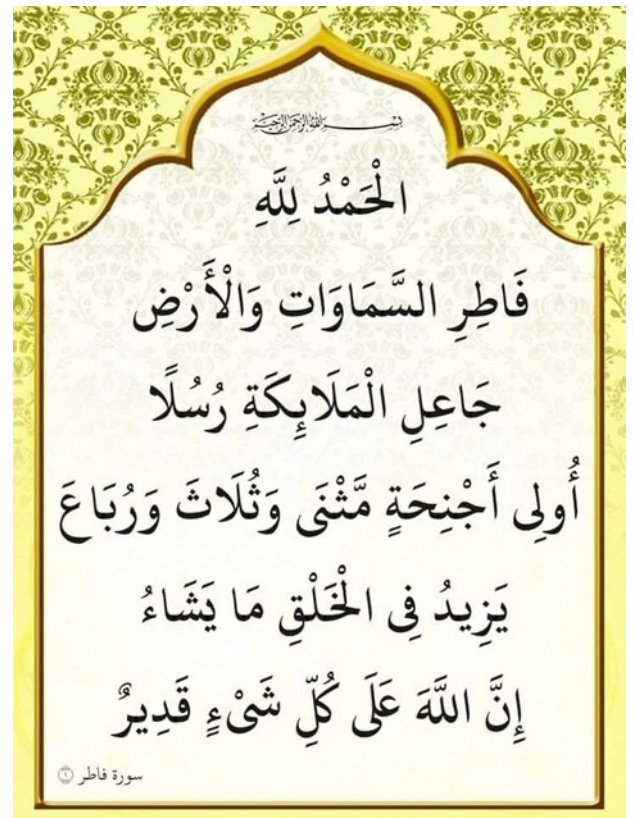 بِسْمِ اللَّهِ الرَّحْمَنِ الرَّحِيمِ
الْحَمْدُ لِلَّهِ
فَاطِرِ السَّمَاوَاتِ وَالْأَرْضِ
جَاعِلِ الْمَلَائِكَةِ رُسُلًا
أُولِى أَجْنِحَةٍ مَّثْنَى وَثُلَاثَ وَرُبَاعَ
يَزِيدُ فِى الْخَلْقِ مَا يَشَاءُ
إِنَّ اللَّهَ عَلَى كُلِّ شَىْءٍ قَدِيرٌ
سورة فاطر ۝١